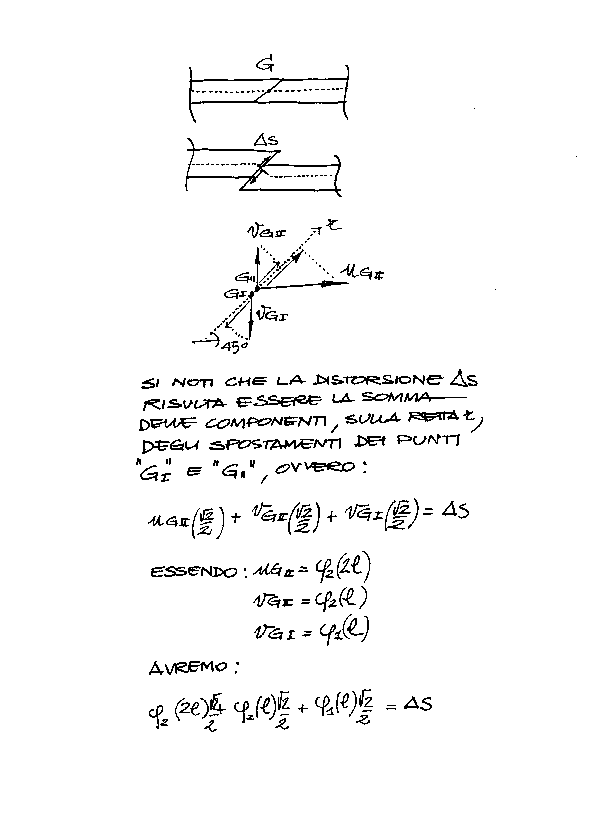 G
ΔS
vGII
t
GII
uGII
GI
vGI
45°
SI NOTI CHE LA DISTORSIONE ΔS
RISULTA ESSERE LA SOMMA
DELLE COMPONENTI, SULLA RETTA t,
DEGLI SPOSTAMENTI DEI PUNTI
"GI" E "GII", OVVERO:
uGII(√2/2) + vGII(√2/2) + vGI(√2/2) = ΔS
ESSENDO: uGII = φ2(2ℓ)
vGII = φ2(ℓ)
vGI = φ1(ℓ)
AVREMO:
φ2(2ℓ)√2/2 + φ2(ℓ)√2/2 + φ1(ℓ)√2/2 = ΔS